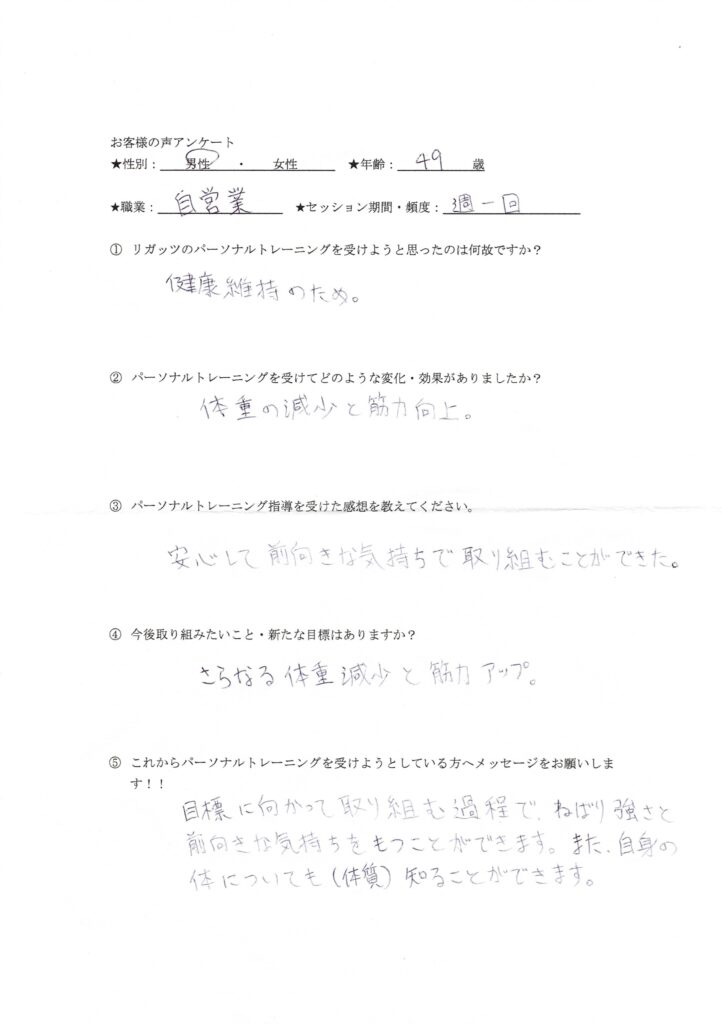 お客様の声アンケート
★性別： 男性 ・ 女性 ★年齢： 49 歳
★職業： 自営業 ★セッション期間・頻度： 週一回
① リガッツのパーソナルトレーニングを受けようと思ったのは何故ですか？
健康維持のため。
② パーソナルトレーニングを受けてどのような変化・効果がありましたか？
体重の減少と筋力向上。
③ パーソナルトレーニング指導を受けた感想を教えてください。
安心して前向きな気持ちで取り組むことができた。
④ 今後取り組みたいこと・新たな目標はありますか？
さらなる体重減少と筋力アップ。
⑤ これからパーソナルトレーニングを受けようとしている方へメッセージをお願いしま
す！！
目標に向かって取り組む過程で、ねばり強さと
前向きな気持ちをもつことができます。また、自身の
体についても（体質）知ることができます。